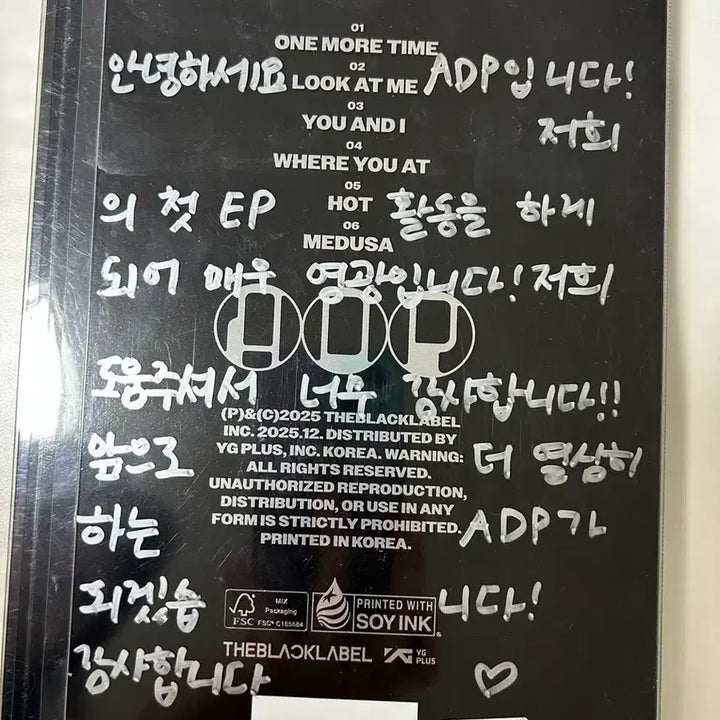 01
ONE MORE TIME
안녕하세요 02 ADP입니다!
LOOK AT ME
03
YOU AND I 저희
04
WHERE YOU AT
05
의 첫 EP HOT 활동을 하게
06
MEDUSA
되어 매우 영광입니다! 저희
도움주셔서 너무 감사합니다!!
(P)&(C)2025 THEBLACKLABEL
INC. 2025.12. DISTRIBUTED BY
앞으로 YG PLUS, INC. KOREA. WARNING: 더 열심히
ALL RIGHTS RESERVED.
UNAUTHORIZED REPRODUCTION,
DISTRIBUTION, OR USE IN ANY
하는 FORM IS STRICTLY PROHIBITED. ADP가
PRINTED IN KOREA.
되겠습 니다!
FSC MIX
Packaging
FSC® C165584
PRINTED WITH
SOY INK®
THEBLACKLABEL YG PLUS
감사합니다 ♡